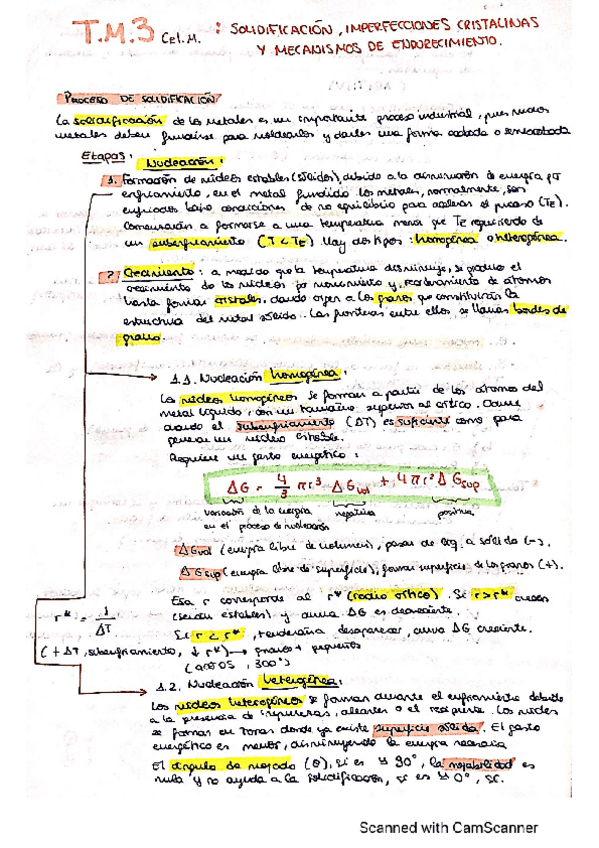 T.M.3 Cel.M. : SOLIDIFICACIÓN, IMPERFECCIONES CRISTALINAS
Y MECANISMOS DE ENDURECIMIENTO.
PROCESO DE SOLIDIFICACIÓN
La solidificación de los metales es un importante proceso industrial, pues muchos
metales deben fundirse para moldearlos y darles una forma acabada o semiacabada
Etapas: Nucleación:
1. Formación de núcleos estables (sólidos), debido a la disminución de energía por
enfriamiento, en el metal fundido. Los metales, normalmente, son
enfriados bajo condiciones de no equilibrio para acelerar el proceso (Te).
Comenzarán a formarse a una temperatura menor que Te requiriendo de
un subenfriamiento (T < TE) Hay dos tipos: homogénea o heterogénea.
2. Crecimiento: a medida que la temperatura disminuye, se produce el
crecimiento de los núcleos por movimiento y de átomos
hasta formar cristales, dando origen a los granos que constituirán la
estructura del metal sólido. Las fronteras entre ellos se llaman bordes de
grano.
1.1. Nucleación homogénea:
Los núcleos homogéneos se forman a partir de los átomos del
metal líquido, con un tamaño superior al crítico. Ocurre
cuando el subenfriamiento (ΔT) es suficiente como para
generar un núcleo estable.
Requiere un gasto energético:
ΔG = 4/3 πr³ ΔGvol + 4πr² ΔGsup
variación de la energía negativa positiva
en el proceso de nucleación
ΔGvol (energía libre de volumen), pasar de líq. a sólido (-).
ΔGsup (energía libre de superficie), formar superficie de los granos (+).
Esa r corresponde al r* (radio crítico). Si r>r* crecen
(serán estables) y curva ΔG es decreciente.
Si r < r*, tenderán a desaparecer, curva ΔG creciente.
r* = 1/ΔT
(+ ΔT, subenfriamiento, ↓ r*) → granos + pequeños
1.2. Nucleación heterogénea:
Los núcleos heterogéneos se forman durante el enfriamiento debido
a la presencia de impurezas, aleantes o el recipiente. Los núcleos
se forman en zonas donde ya existe superficie sólida. El gasto
energético es menor, disminuyendo la energía necesaria
El ángulo de mojado (θ), si es 90°, la mojabilidad es
nula y no ayuda a la solidificación, si es 0°, sí.
Scanned with CamScanner